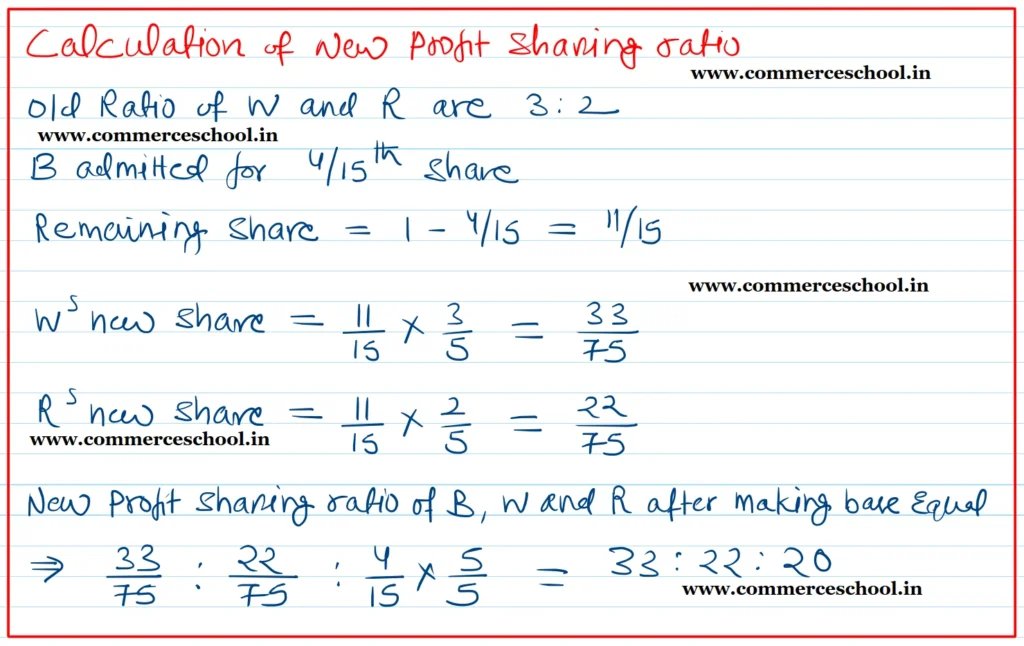 Calculation of New Profit Sharing ratio
www.commerceschool.in
old Ratio of W and R are 3 : 2
www.commerceschool.in
B admitted for 4/15th share
Remaining share = 1 - 4/15 = 11/15
www.commerceschool.in
W's new share = 11/15 × 3/5 = 33/75
R's new share = 11/15 × 2/5 = 22/75
www.commerceschool.in
New Profit sharing ratio of B, W and R after making base Equal
⇒ 33/75 : 22/75 : 4/15 × 5/5 = 33 : 22 : 20
www.commerceschool.in